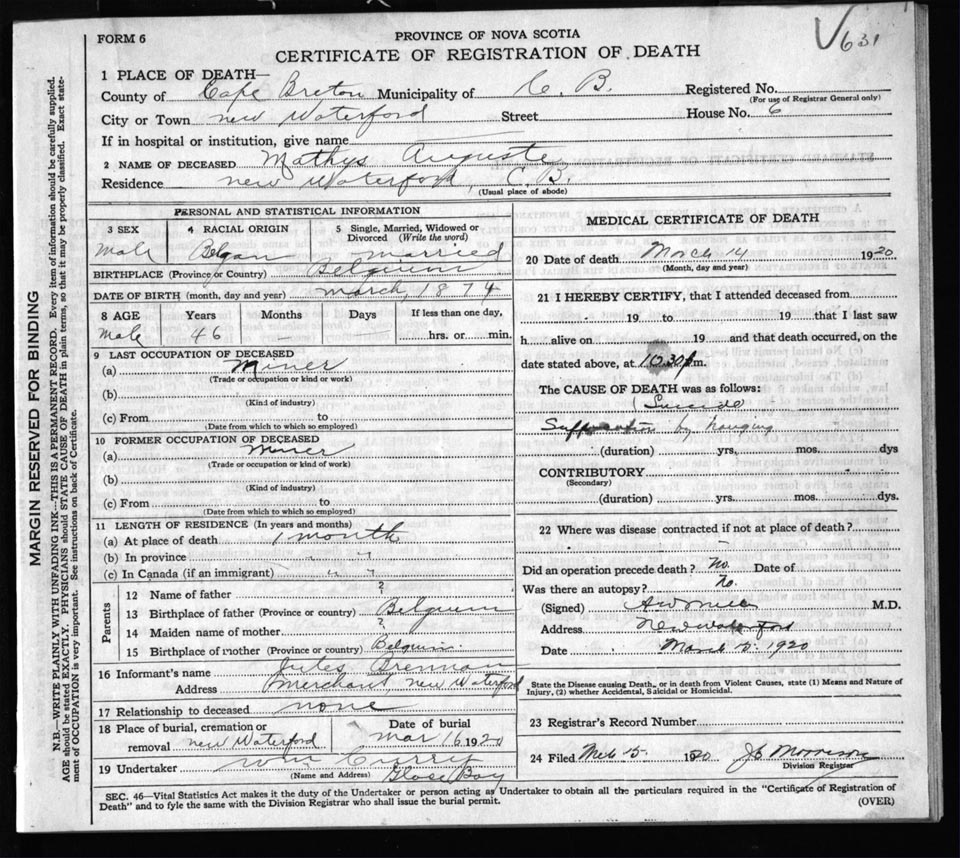 631
FORM 6
PROVINCE OF NOVA SCOTIA
CERTIFICATE OF REGISTRATION OF DEATH
1 PLACE OF DEATH—
County of Cape Breton Municipality of C. B. Registered No.
(For use of Registrar General only)
City or Town New Waterford Street House No. 6
If in hospital or institution, give name
2 NAME OF DECEASED Mathys Auguste
Residence New Waterford, C.B.
(Usual place of abode)
PERSONAL AND STATISTICAL INFORMATION
3 SEX 4 RACIAL ORIGIN 5 Single, Married, Widowed or Divorced (Write the word)
Male Belgan married
BIRTHPLACE (Province or Country) Belguim
DATE OF BIRTH (month, day and year) march, 1874
8 AGE Years Months Days If less than one day,
male 46 — — hrs. or min.
9 LAST OCCUPATION OF DECEASED
(a) Miner
(Trade or occupation or kind or work)
(b)
(Kind of industry)
(c) From to
(Date from which to which so employed)
10 FORMER OCCUPATION OF DECEASED
(a) Miner
(Trade or occupation or kind or work)
(b)
(Kind of industry)
(c) From to
(Date from which to which so employed)
11 LENGTH OF RESIDENCE (In years and months)
(a) At place of death 1 month
(b) In province " "
(c) In Canada (if an immigrant) " "
Parents
12 Name of father ?
13 Birthplace of father (Province or country) Belguim
14 Maiden name of mother ?
15 Birthplace of mother (Province or country) Belguim
16 Informant's name Jules Brennan
Address Merchant, New Waterford
17 Relationship to deceased none
18 Place of burial, cremation or removal New Waterford Date of burial Mar 16 1920
19 Undertaker Wm Curry
(Name and Address) Glace Bay
MEDICAL CERTIFICATE OF DEATH
20 Date of death March 14 1920
(Month, day and year)
21 I HEREBY CERTIFY, that I attended deceased from
19 to 19 that I last saw
h alive on 19 and that death occurred, on the
date stated above, at 10.30 p.m.
The CAUSE OF DEATH was as follows:
(Suicide
Suffocation by hanging
(duration) yrs. mos. dys
CONTRIBUTORY
(Secondary)
(duration) yrs. mos. dys.
22 Where was disease contracted if not at place of death?
Did an operation precede death? No. Date of
Was there an autopsy? No.
(Signed) M.D.
Address New Waterford
Date March 1920
State the Disease causing Death, or in death from Violent Causes, state (1) Means and Nature of
Injury, (2) whether Accidental, Suicidal or Homicidal.
23 Registrar's Record Number
24 Filed Mch 15 1920 Morrison
Division Registrar
SEC. 46—Vital Statistics Act makes it the duty of the Undertaker or person acting as Undertaker to obtain all the particulars required in the "Certificate of Registration of
Death" and to fyle the same with the Division Registrar who shall issue the burial permit. (OVER)
MARGIN RESERVED FOR BINDING
N.B.—WRITE PLAINLY WITH UNFADING INK—THIS IS A PERMANENT RECORD. Every item of information should be carefully supplied.
AGE should be stated EXACTLY. PHYSICIANS should STATE CAUSE OF DEATH in plain terms, so that it may be properly classified. Exact state-
ment of OCCUPATION is very important. See instructions on back of Certificate.